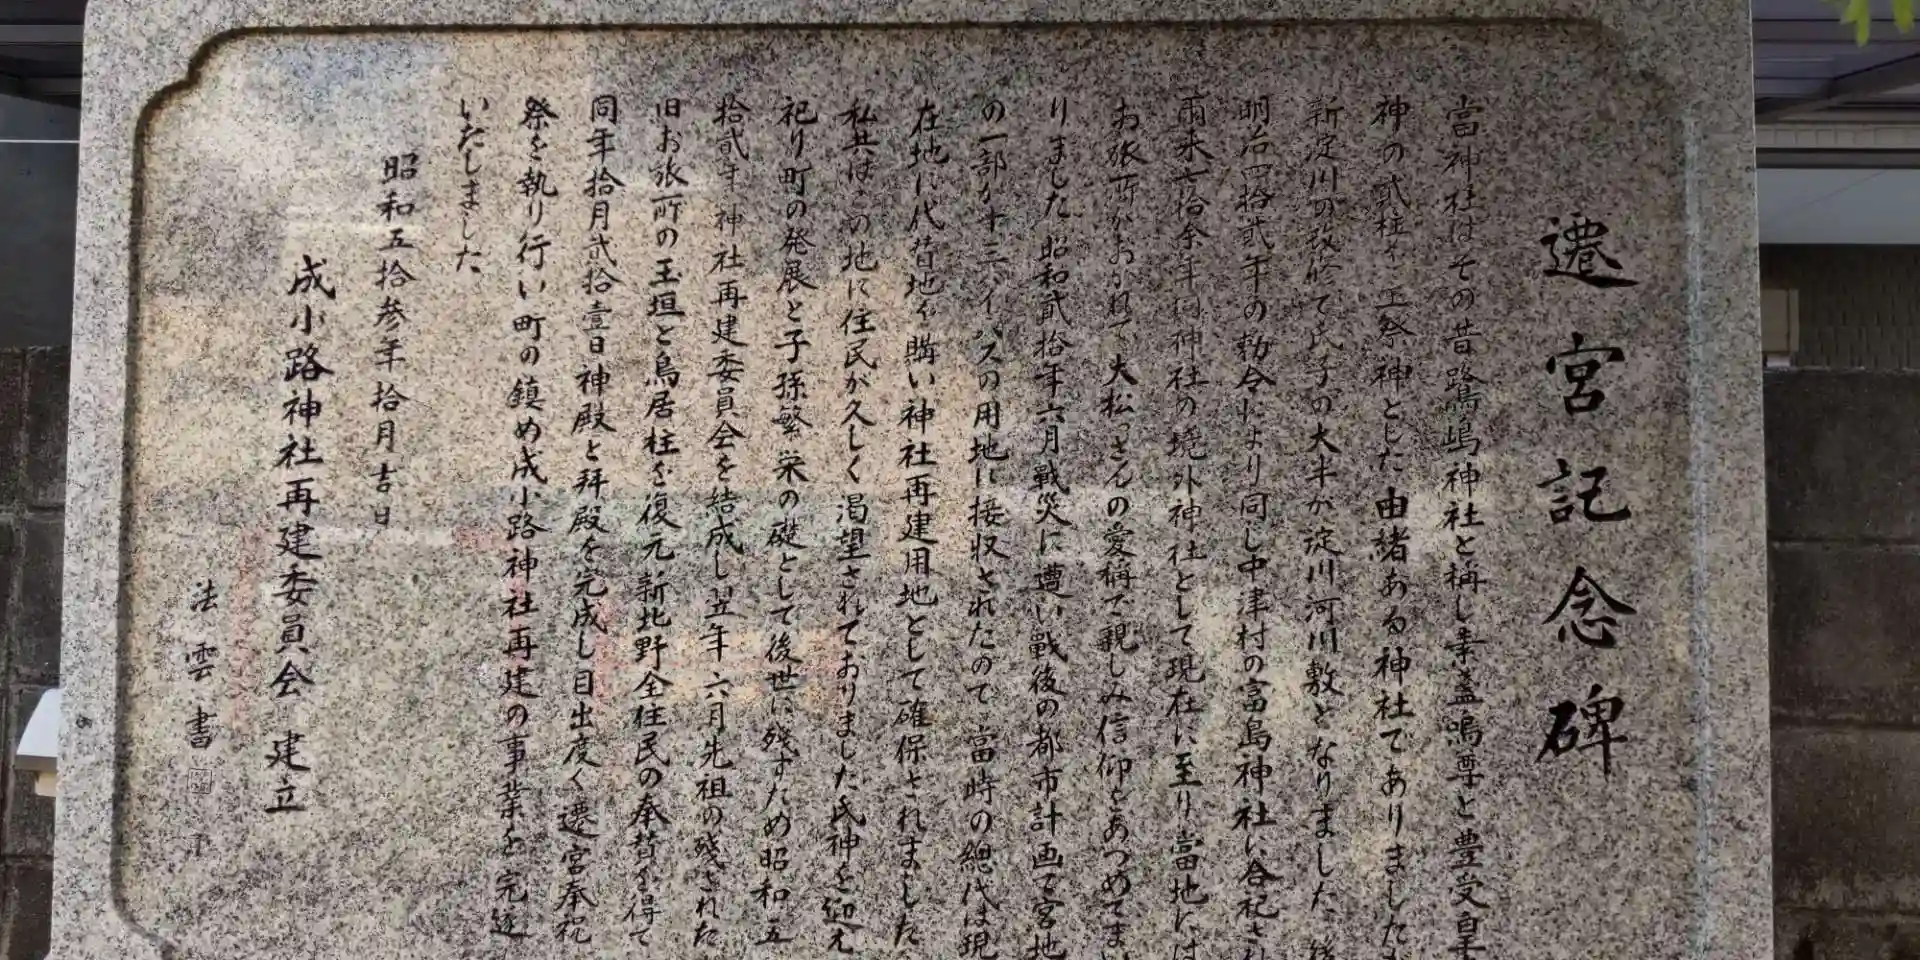 遷宮記念碑
當神社はその昔鷺嶋神社と稱し素盞嗚尊と豊受皇
神の弐柱を主祭神とした由緒ある神社でありました
新淀川の改修で氏子の大半が淀川河川敷となりました 後
明治四拾弐年の勅令により同じ中津村の富島神社に合祀され
爾来七拾余年 神社の境外神社として現在に至り當地には
お旅所がおかれて大松っさんの愛稱で親しみ信仰をあつめてま
りました 昭和弐拾年六月戰災に遭い戰後の都市計画で宮地
の一部が十三バイパスの用地に接収されたので當時の總代は現
在地に代替地を購い神社再建用地として確保されました
私共はこの地に住民が久しく渇望されておりました氏神を迎え
祀り町の発展と子孫繁栄の礎として後世に残すため昭和五
拾弐年神社再建委員会を結成し翌年六月先祖の残された
旧お旅所の玉垣と鳥居柱を復元新北野全住民の奉賛を得て
同年拾月弐拾壹日神殿と拜殿を完成し目出度く遷宮奉祝
祭を執り行い町の鎮め成小路神社再建の事業を完遂
いたしました
昭和五拾参年拾月吉日
成小路神社再建委員会 建立
法雲書